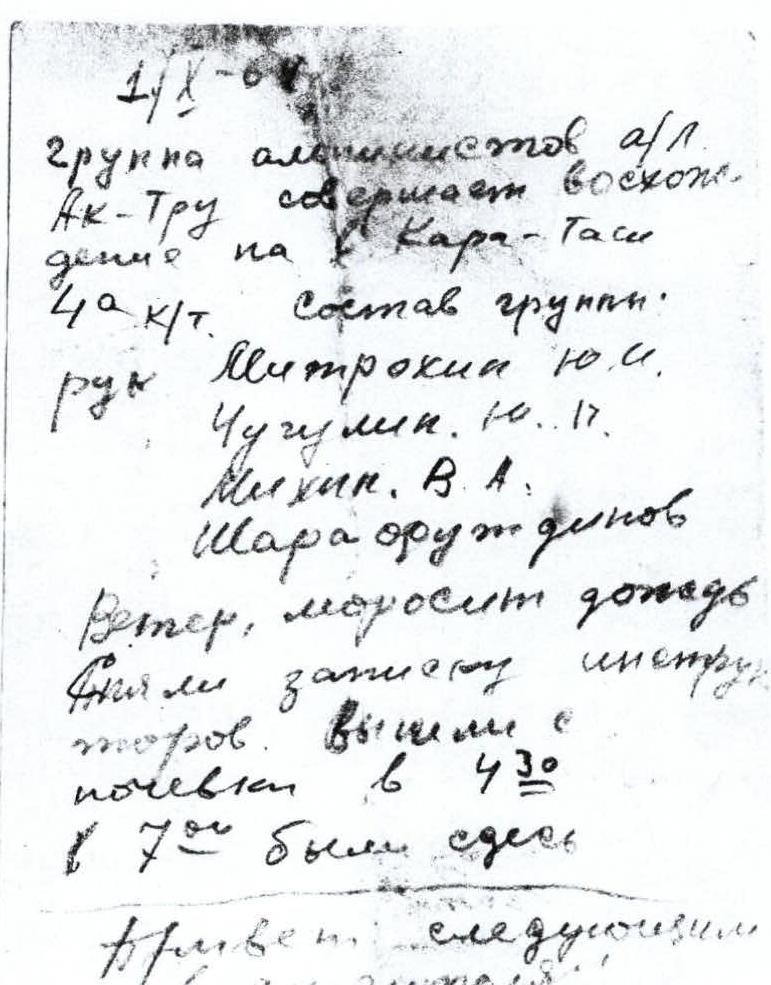 группа альпинистов а/л
Ак-Тру совершает восхож-
дение на в Кара-Таш
4а к/т. состав группы.
рук Митрохин Ю.И.
Чугулин. Ю. П.
Михин. В. А.
Шарафутдинов
Ветер, моросит дождь
Сняли записку инструк
торов. Вышли с
ночевки в 4 30
в 7 00 были сдесь
Привет следующим